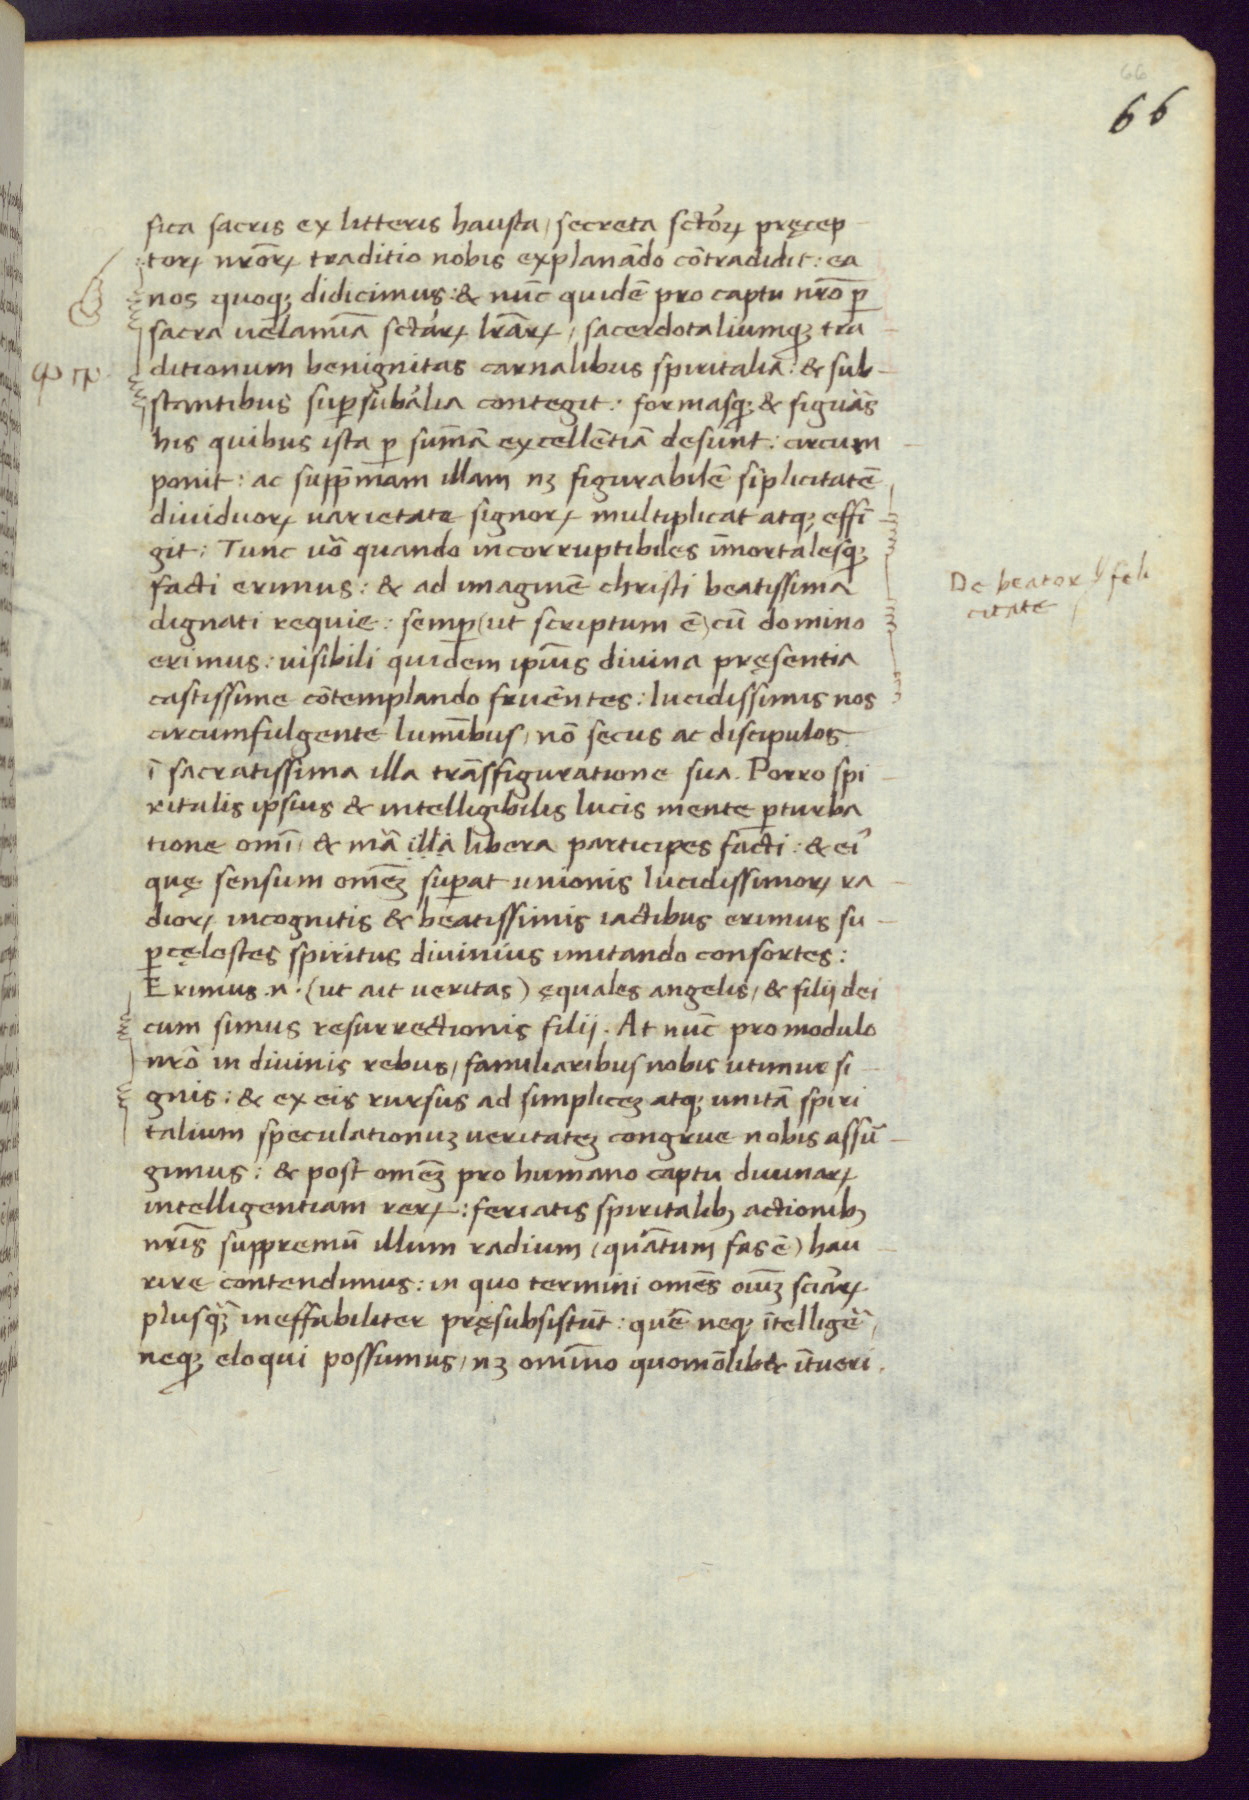 66
66
sica sacris ex litteris hausta, secreta sctõꝝ pręcep
toꝝ nr̃oꝝ traditio nobis explanãdo cõtradidit: ea
nos quoqꝫ didicimus: & nũc quidẽ pro captu nr̃o ꝑ
sacra uelamĩa sctãꝝ lrãꝝ, sacerdotaliumqꝫ tra
ditionum benignitas carnalibus spiritalia: & sub
stantibus suꝑsub̃alia contegit: formasqꝫ & figurãs
his quibus ista ꝑ sum̃ã excellẽtiã desũnt: circum
ponit: ac supp̃mam illam nꝫ figurabilẽ sĩplicitatẽ
diuiduoꝝ uarietate signoꝝ multiplicat atqꝫ effi
git: Tunc uõ quando incorruptibiles ĩmortalesqꝫ
facti erimus: & ad imaginẽ christi beatissima
De beatorꝝ feli
citate
dignati requie: semꝑ (ut scriptum ẽ) cũ domino
erimus: uisibili quidem ipĩus diuina pręsentia
castissime cõtemplando fruẽntes: lucidissimis nos
circumfulgente lumĩbus, nõ secus ac discipulos
ĩ sacratissima illa trãsfiguratione sua. Porro spi
ritalis ipsius & intelligibilis lucis mente ꝑturba
tione omĩ, & mã illa libera participes facti: & eiꝰ
quę sensum omẽꝫ suꝑat unionis lucidissimoꝝ ra
dioꝝ incognitis & beatissimis iactibus erimus su
ꝑcęlestes spiritus diuinius imitando consortes:
Erimus .n. (ut ait ueritas) ęquales angelis, & filij dei
cum simus resurrectionis filij. At nũc pro modulo
nr̃o in diuinis rebus, familiaribus nobis utimur si
gnis: & ex eis rursus ad simplicẽꝫ atqꝫ unitã spiri
talium speculationuꝫ ueritateꝫ congrue nobis assũ
gimus: & post omẽꝫ pro humano captu diuinaꝝ
intelligentiam reꝝ: feriatis spiritalibꝫ actionibꝫ
nr̃is suppremũ illum radium (quãtum fas ẽ) hau
rire contendimus: in quo termini omẽs oĩuꝫ sciãꝝ
plusqꝫ̃ ineffabiliter pręsubsistũt: quẽ neqꝫ ĩtelligẽ,
neqꝫ eloqui possumus, nꝫ omĩno quomõlib& ĩtueri.